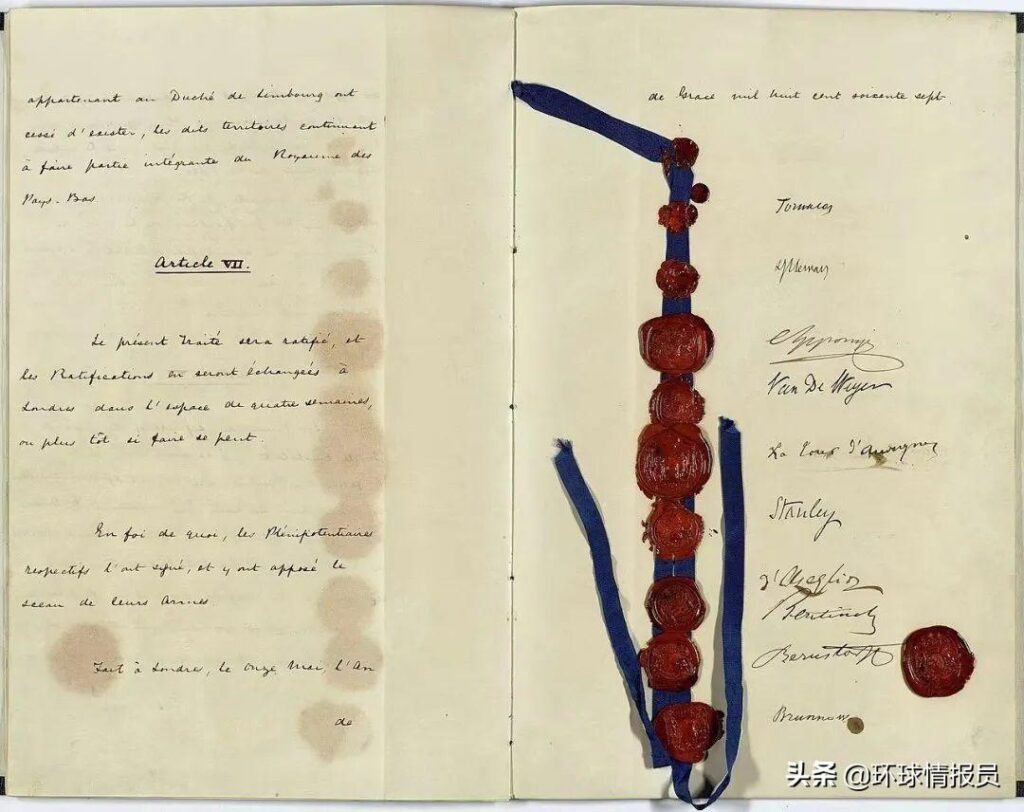 appartenant au Duché de Limbourg ont
cessé d'exister, les dits territoires continuant
à faire partie intégrante du Royaume des
Pays-Bas.
Article VII.
Le présent Traité sera ratifié, et
les Ratifications en seront échangées à
Londres dans l'espace de quatre semaines,
ou plus tôt si faire se peut.
En foi de quoi, les Plénipotentiaires
respectifs l'ont signé, et y ont apposé le
sceau de leurs Armes.
Fait à Londres, le onze Mai, l'An
de
de Grace mil huit cent soixante sept.
Tornaco
Apponyi
Van De Weyer
La Tour d'Auvergne
Stanley
d'Azeglio
Bentinck
Bernstorff
Brunnow
头条 @环球情报员